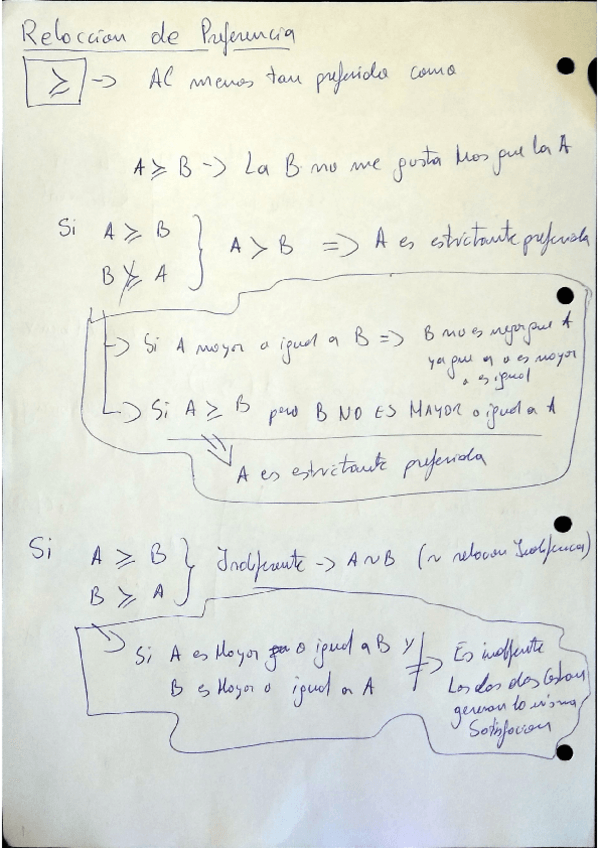 Reloccion de Preferencia
≥ -> Al menos tan preferida como
A ≥ B -> La B no me gusta Mas que la A
Si A ≥ B
B ≱ A } A > B => A es estrictante preferida
-> Si A mayor o igual a B => B no es mejor que A
ya que a o es mayor
o es igual
-> Si A ≥ B pero B NO ES MAYOR o igual a A
A es estrictante preferida
Si A ≥ B
B ≥ A } Indiferente -> A ~ B (~ relacion Indiferencia)
Si A es Mayor o igual a B y => Es indiferente
B es Mayor o igual a A Las dos
generan la misma
Satisfacion